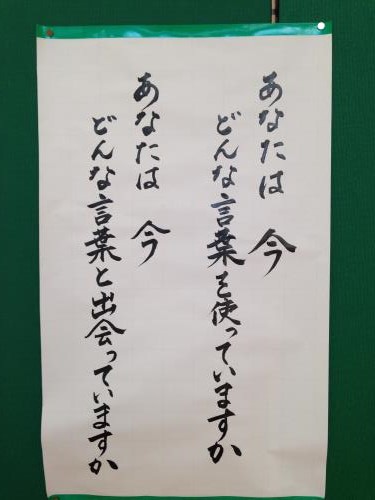 あなたは 今
どんな言葉を使っていますか
あなたは 今
どんな言葉と出会っていますか